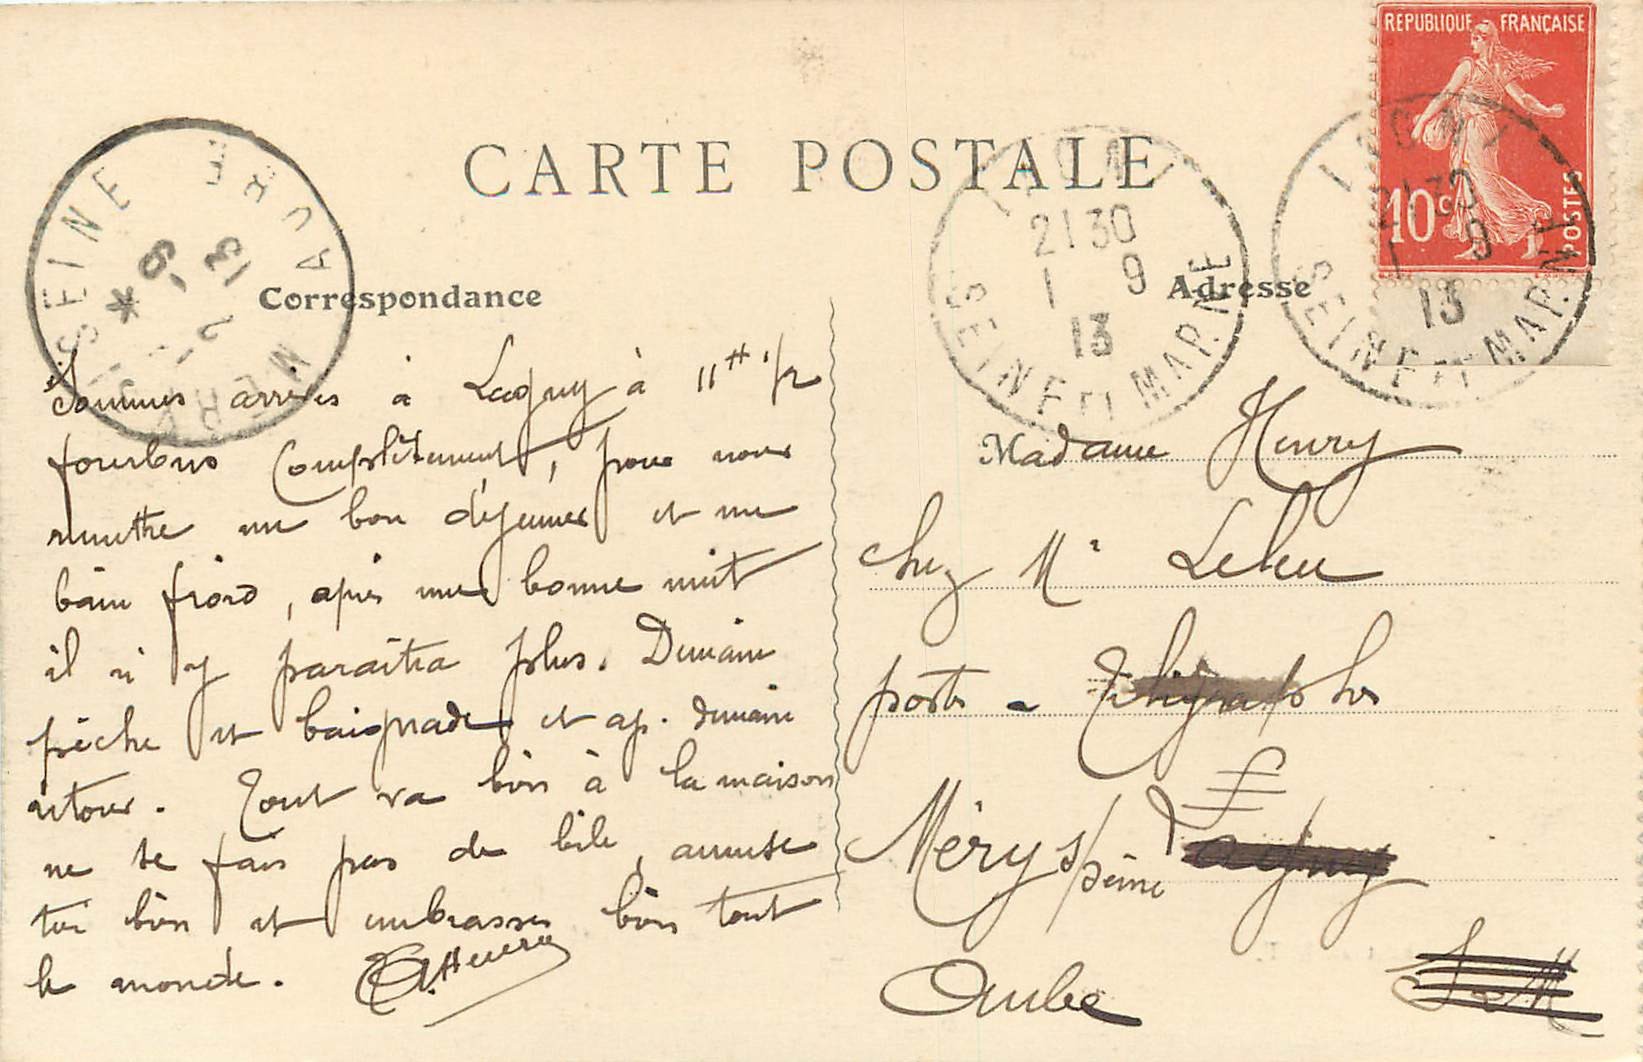 REPUBLIQUE FRANÇAISE
10c POSTES
CARTE POSTALE
MERY S SEINE AUBE
13
2 - 9
LAGNY
2130
1 9
13
SEINE ET MARNE
LAGNY
2130
1 9
13
SEINE ET MARNE
Correspondance
Adresse
Sommes arrivés à Lagny à 11 H 1/2
fourbus complètement, pour nous
remettre un bon déjeuner et un
bain froid, après une bonne nuit
il n'y paraîtra plus. Demain
pêche et baignade et ap. demain
retour. Tout va bien à la maison
ne te fais pas de bile, amuse
toi bien et embrasses bien tout
le monde. Henry
Madame Henry
chez Mr Leleu
postes & Télégraphes
Méry s/Seine Lagny
Aube S & M